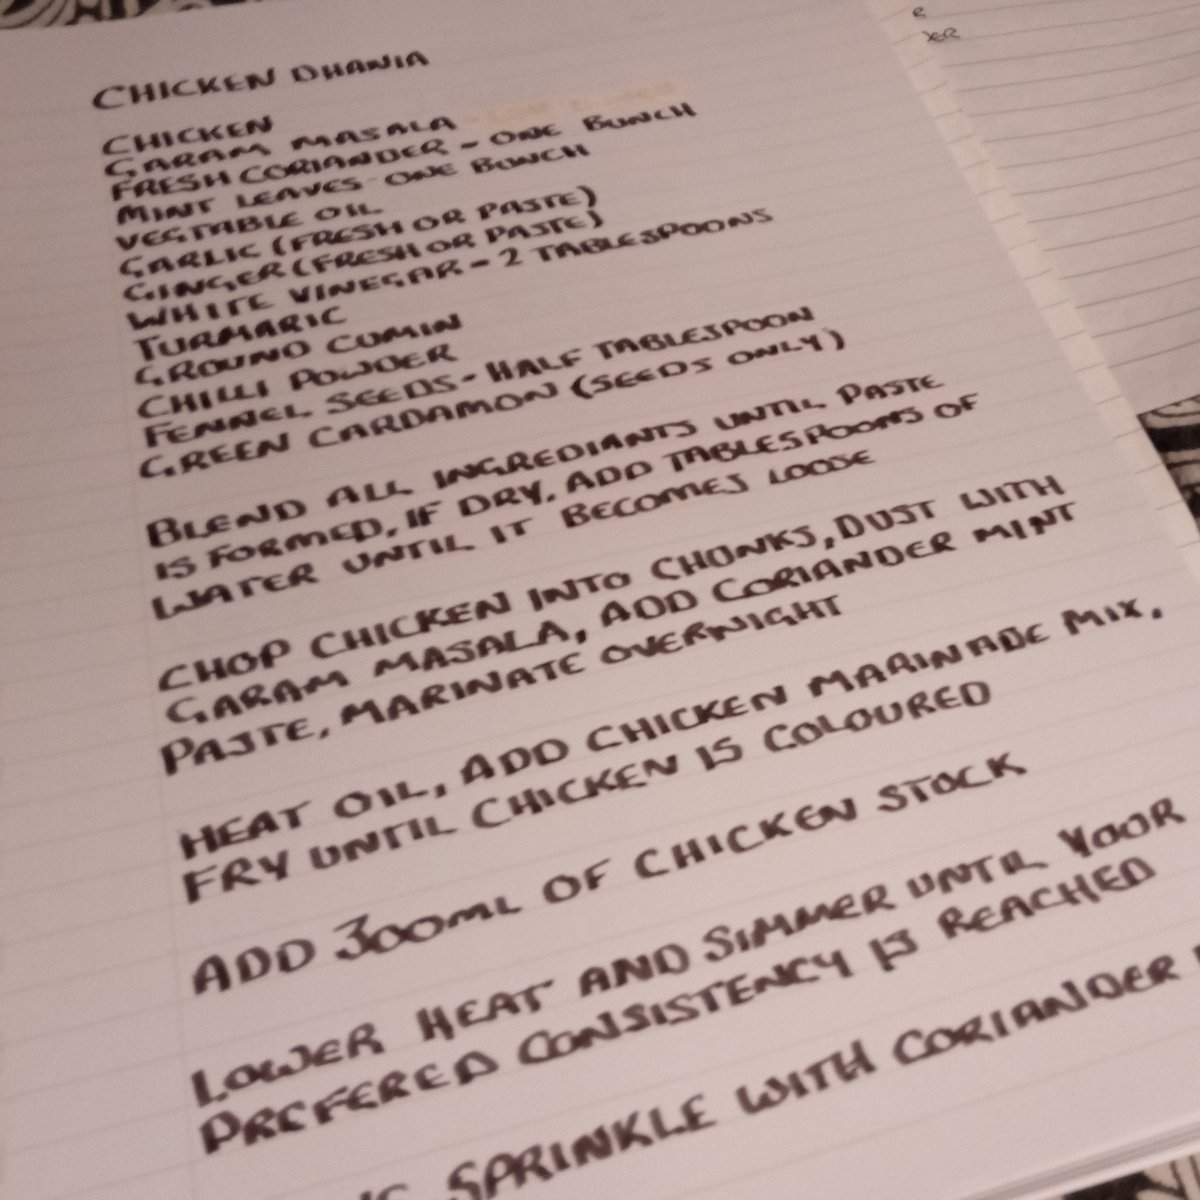 CHICKEN DHANIA
CHICKEN
GARAM MASALA
FRESH CORIANDER - ONE BUNCH
MINT LEAVES - ONE BUNCH
VEGTABLE OIL
GARLIC (FRESH OR PASTE)
GINGER (FRESH OR PASTE)
WHITE VINEGAR - 2 TABLESPOONS
TURMARIC
GROUND CUMIN
CHILLI POWDER
FENNEL SEEDS - HALF TABLESPOON
GREEN CARDAMON (SEEDS ONLY)
BLEND ALL INGREDIANTS UNTIL PASTE
IS FORMED, IF DRY, ADD TABLESPOONS OF
WATER UNTIL IT BECOMES LOOSE
CHOP CHICKEN INTO CHUNKS, DUST WITH
GARAM MASALA, ADD CORIANDER MINT
PASTE, MARINATE OVERNIGHT
HEAT OIL, ADD CHICKEN MARINADE MIX,
FRY UNTIL CHICKEN IS COLOURED
ADD 300ML OF CHICKEN STOCK
LOWER HEAT AND SIMMER UNTIL YOUR
PREFERED CONSISTENCY IS REACHED
SPRINKLE WITH CORIANDER